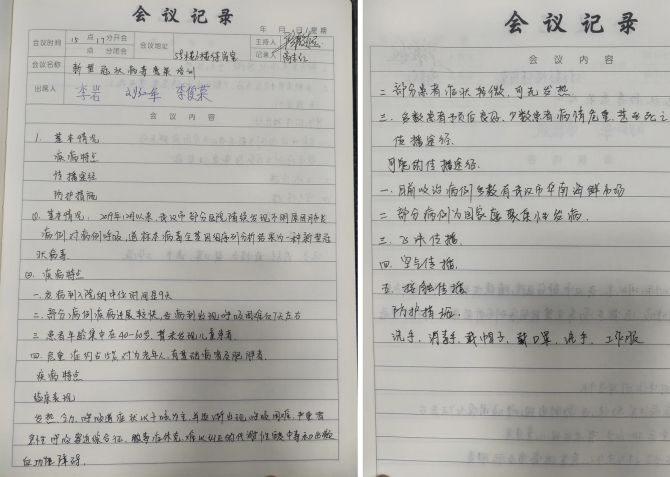 会议记录
年 月 日 星期
会议时间 15 点 17 分开会
点 分闭会
会议地址
主持人
记录人
会议名称 新型冠状病毒感染培训
出席人 李岩
会议内容
1. 基本情况
疾病特点
传播途径
防护措施
基本情况: 2019年12月以来, 武汉市部分医院陆续发现不明原因肺炎
病例, 对病例呼吸道标本病毒全基因组序列分析结果为一种新型冠
状病毒
疾病特点
一. 发病到入院的中位时间是9天
二. 部分病例疾病进展较快, 出病到出现呼吸困难仅7天左右
三. 患者年龄集中在40-60岁, 暂未发现儿童患者.
四. 危重症约占15% 对为老年人, 有基础病者及肥胖者.
疾病特点
临床表现
发热, 乏力, 呼吸道症状以干咳为主, 并逐渐出现呼吸困难, 严重者
急性呼吸窘迫综合征、脓毒症休克, 难以纠正的代谢性酸中毒和出凝
血功能障碍.
会议记录
会议内容
二. 部分患者症状轻微, 可无发热
三. 多数患者预后良好, 少数患者病情危重, 甚至死亡
传播途径.
可能的传播途径.
一. 目前收治病例多数有武汉市华南海鲜市场
二. 部分病例为国家 聚集性发病.
三. 飞沫传播.
四. 空气传播.
五. 接触传播
防护措施.
洗手, 消毒, 戴帽子, 戴口罩, 洗手, 工作服